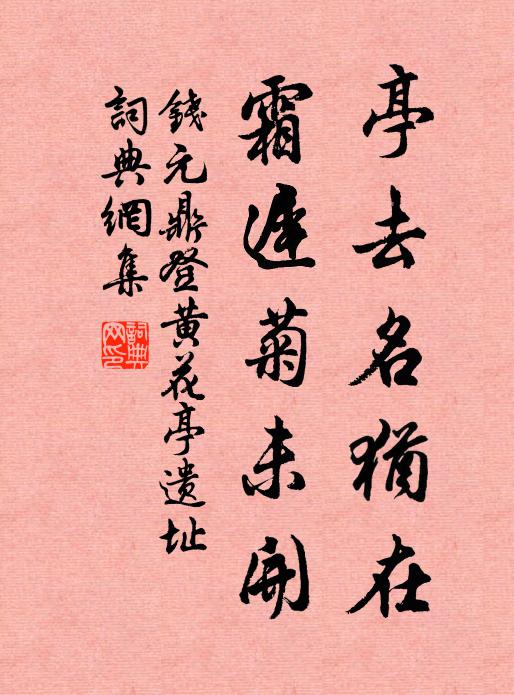 亭去名猶在
霜遲菊未開
錢元鼎登黄花亭遺址
詞典網集
詞典网印